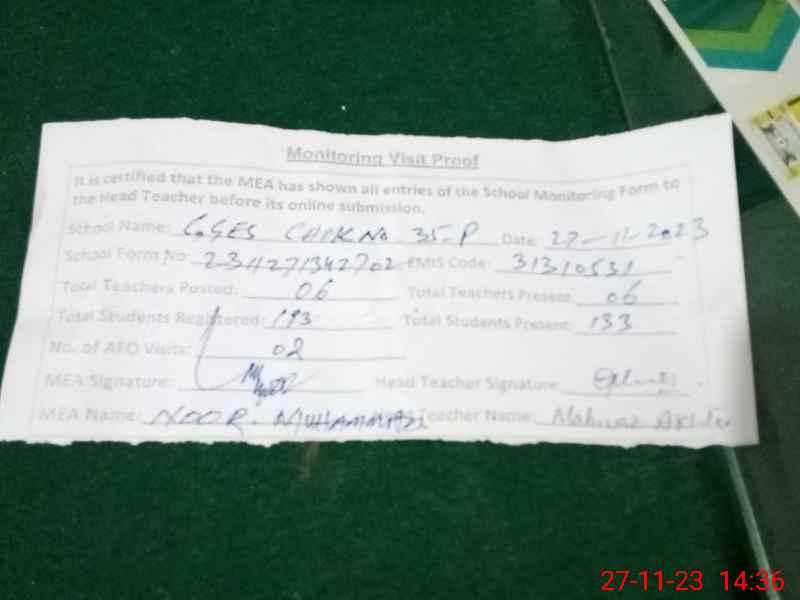 Monitoring Visit Proof
It is certified that the MEA has shown all entries of the School Monitoring Form to
the Head Teacher before its online submission.
School Name: GGES CHAK No 35-P Date: 27-11-2023
School Form No: 234271342702 EMIS Code: 31310531
Total Teachers Posted: 06 Total Teachers Present: 06
Total Students Registered: 193 Total Students Present: 133
No. of AEO Visits: 02
MEA Signature: Head Teacher Signature
MEA Name: NOOR. MUHAMMAD Teacher Name: Mahnaz Akhter
27-11-23 14:36